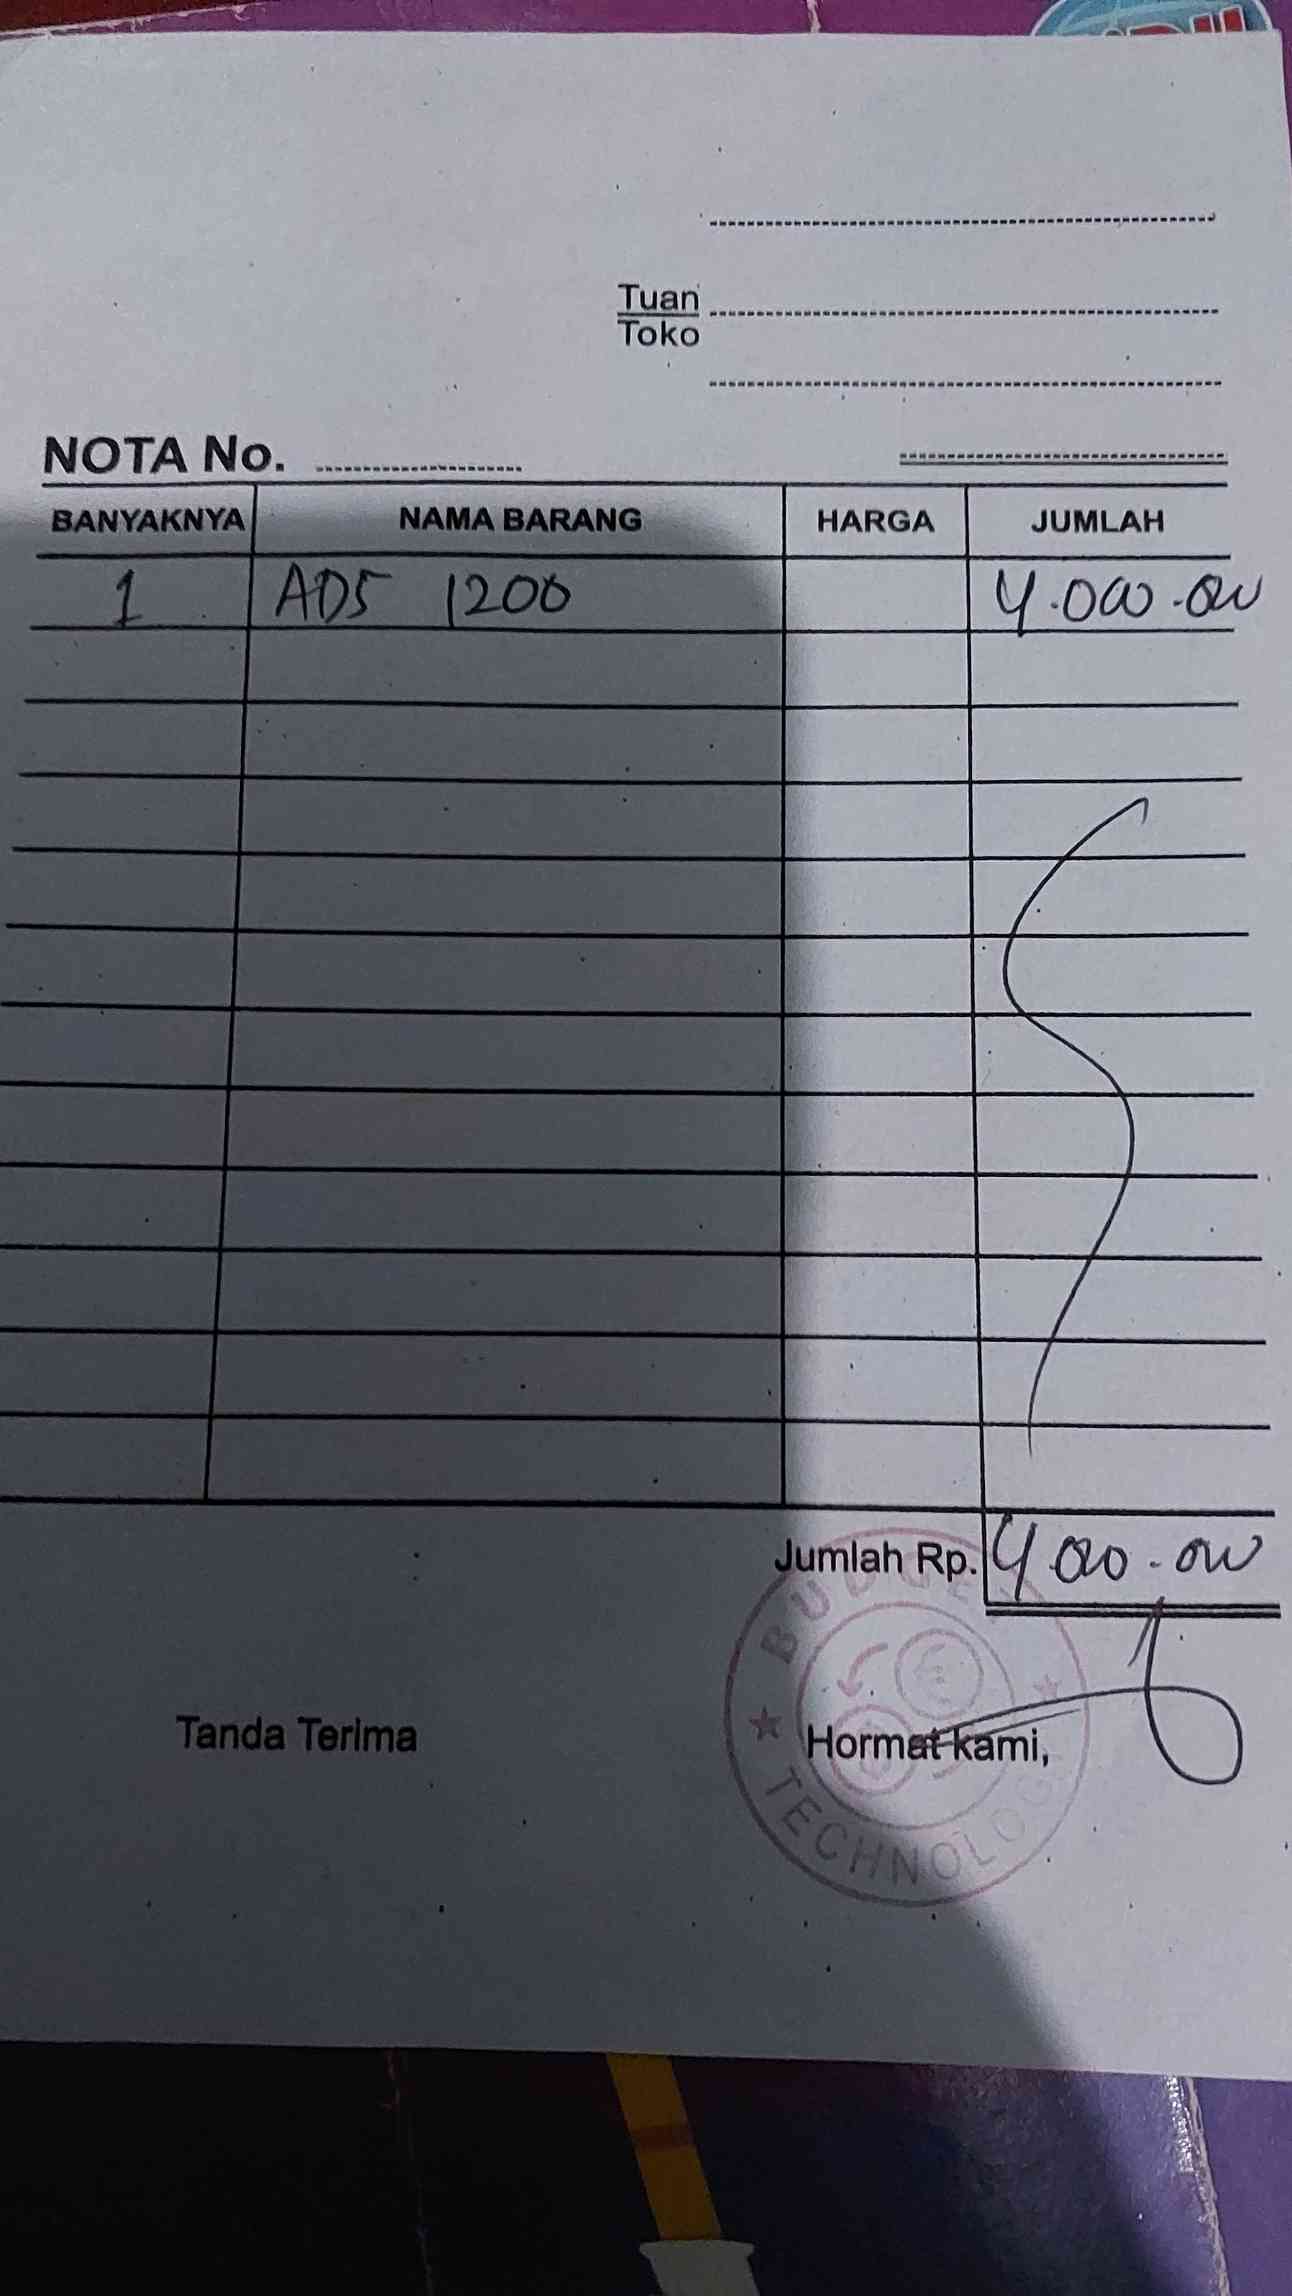 Tuan
Toko
NOTA No.
BANYAKNYA NAMA BARANG HARGA JUMLAH
1 ADS 1200 4.000.000
Jumlah Rp. 4.000.000
Tanda Terima
Hormat kami,
TECHNOLO